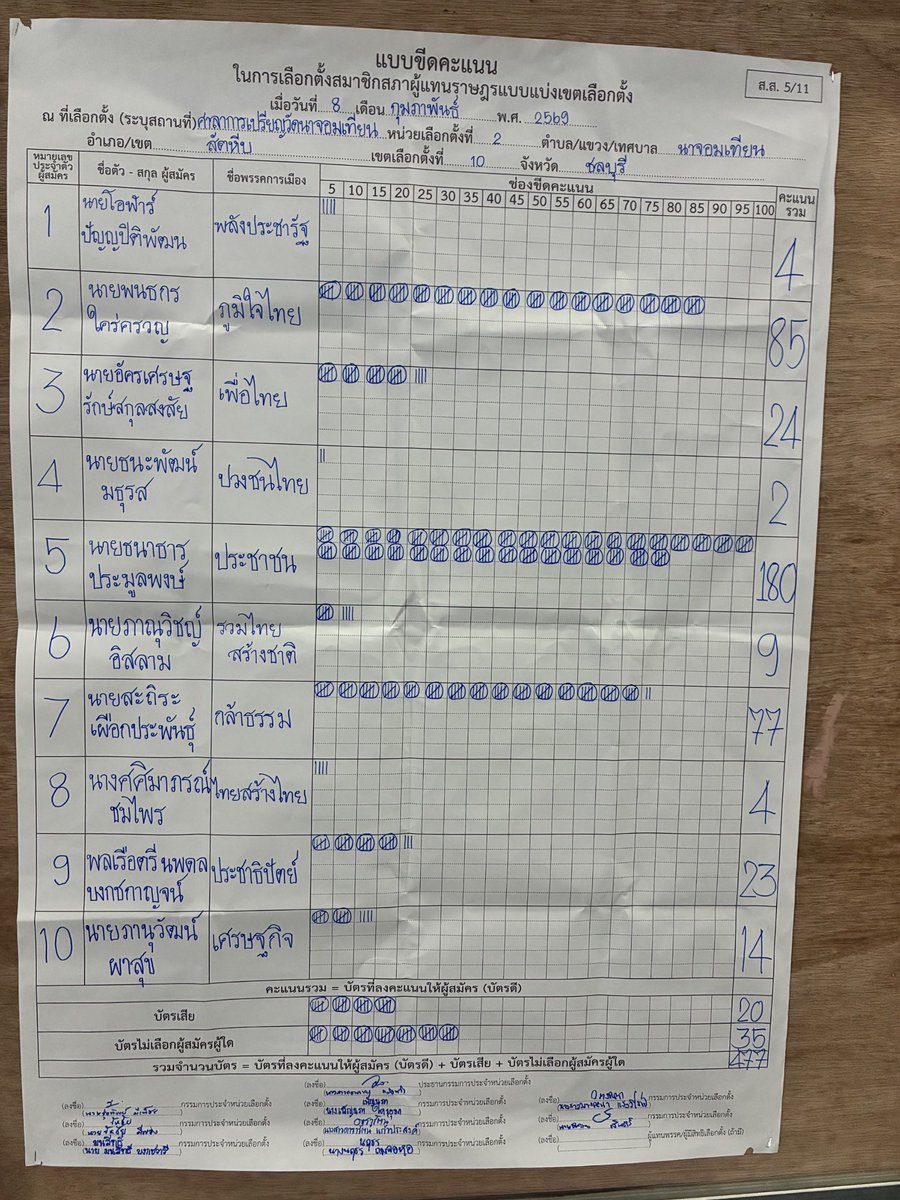 แบบขีดคะแนน
ส.ส. 5/11
ในการเลือกตั้งสมาชิกสภาผู้แทนราษฎรแบบแบ่งเขตเลือกตั้ง
เมื่อวันที่ 8 เดือน กุมภาพันธ์ พ.ศ. 2569
ณ ที่เลือกตั้ง (ระบุสถานที่) ศาลาการเปรียญวัดนาจอมเทียน หน่วยเลือกตั้งที่ 2 ตำบล/แขวง/เทศบาล นาจอมเทียน
อำเภอ/เขต สัตหีบ เขตเลือกตั้งที่ 10 จังหวัด ชลบุรี
หมายเลขประจำตัวผู้สมัคร ชื่อตัว - สกุล ผู้สมัคร ชื่อพรรคการเมือง ช่องขีดคะแนน คะแนนรวม
5 10 15 20 25 30 35 40 45 50 55 60 65 70 75 80 85 90 95 100
1 นายโอฬาร์ ปัญญปิติพัฒน พลังประชารัฐ 4
2 นายพนธกร ใคร่ครวญ ภูมิใจไทย 85
3 นายอัครเศรษฐ รักษ์สกุลสงสัย เพื่อไทย 24
4 นายธนะพัฒน์ มธุรส ปวงชนไทย 2
5 นายธนาธาร ประมูลพงษ์ ประชาชน 180
6 นายภาณุวิชญ์ อิสลาม รวมไทยสร้างชาติ 9
7 นายสะถิระ เผือกประพันธุ์ กล้าธรรม 77
8 นางศศิมาภรณ์ ชมไพร ไทยสร้างไทย 4
9 พลเรือตรี นพดล บงกชกาญจน์ ประชาธิปัตย์ 23
10 นายภานุวัฒน์ ผาสุข เศรษฐกิจ 14
คะแนนรวม = บัตรที่ลงคะแนนให้ผู้สมัคร (บัตรดี)
บัตรเสีย 20
บัตรไม่เลือกผู้สมัครผู้ใด 35
รวมจำนวนบัตร = บัตรที่ลงคะแนนให้ผู้สมัคร (บัตรดี) + บัตรเสีย + บัตรไม่เลือกผู้สมัครผู้ใด 477
(ลงชื่อ) ประธานกรรมการประจำหน่วยเลือกตั้ง
(ลงชื่อ) กรรมการประจำหน่วยเลือกตั้ง (ลงชื่อ) กรรมการประจำหน่วยเลือกตั้ง (ลงชื่อ) กรรมการประจำหน่วยเลือกตั้ง
(ลงชื่อ) กรรมการประจำหน่วยเลือกตั้ง (ลงชื่อ) กรรมการประจำหน่วยเลือกตั้ง (ลงชื่อ) กรรมการประจำหน่วยเลือกตั้ง
(ลงชื่อ) กรรมการประจำหน่วยเลือกตั้ง (ลงชื่อ) กรรมการประจำหน่วยเลือกตั้ง (ลงชื่อ) ผู้แทนพรรค/ผู้มีสิทธิเลือกตั้ง (ถ้ามี)